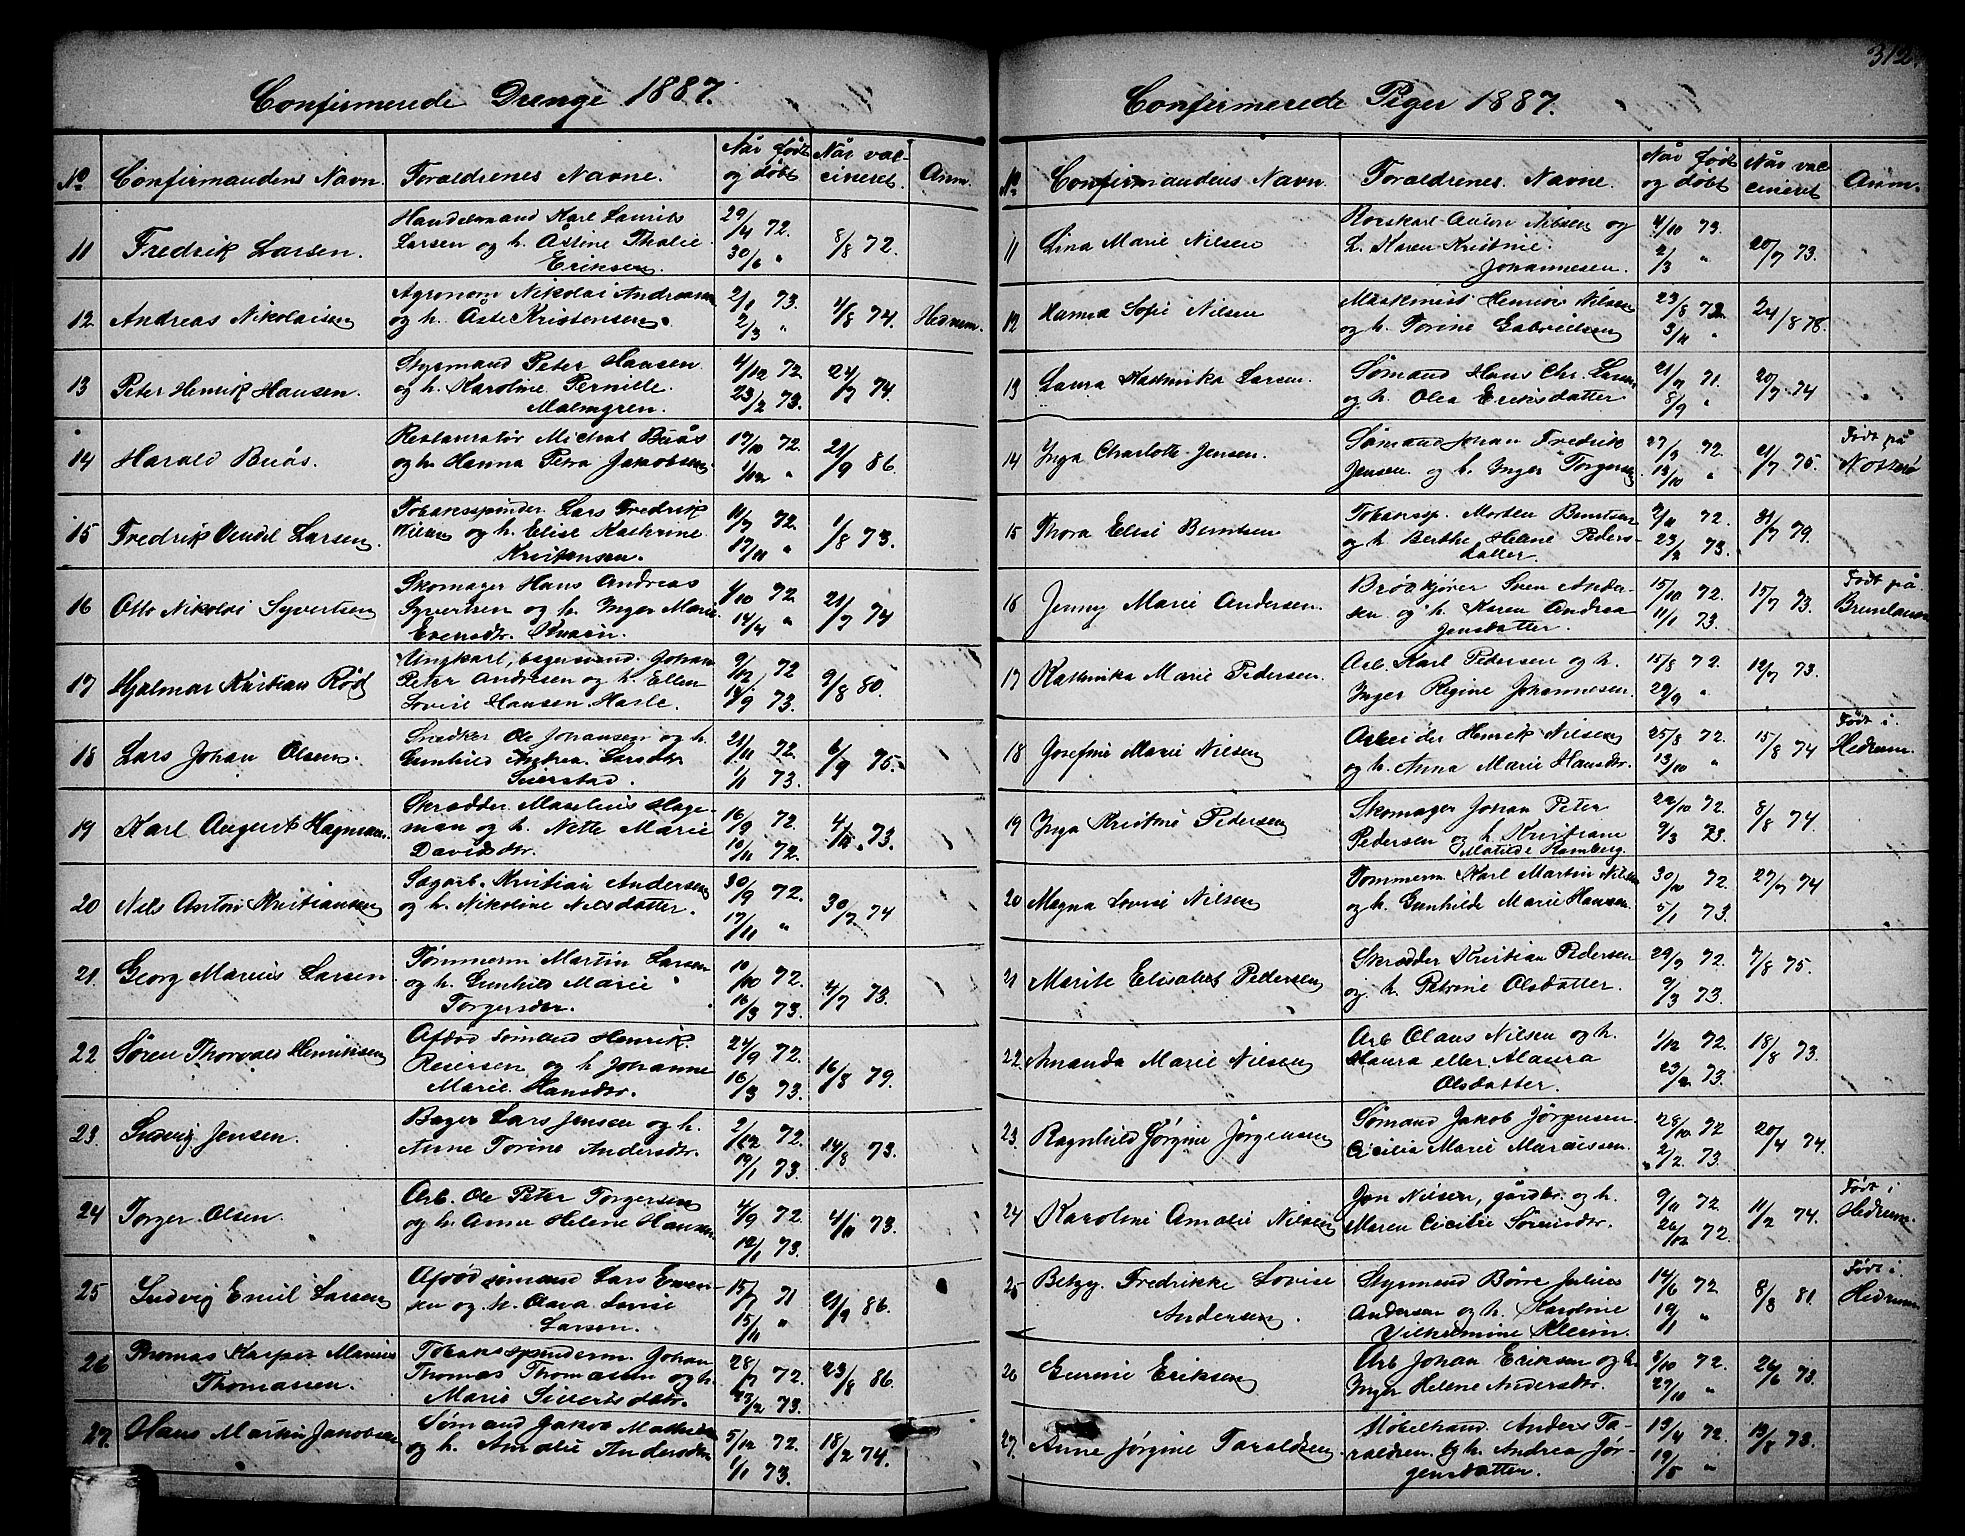 312
Confirmerede Drenge 1887.
No Confirmandens Navn. Forældrenes Navne. Når født og døbt Når vaccineret. Anm.
11 Fredrik Larsen. Handelsmand Karl Laurits 29/4 72. 8/8 72.
Larsen og h. Astine Thalie 30/6 "
Eriksen.
12 Andreas Nikolaisen Agronom Nikolai Andreasen 2/1 73. 4/8 74. Hedrum.
og h. Aste Kristensen. 2/3 "
13 Peter Henrik Hansen. Styrmand Peter Hansen 4/12 72. 24/7 74.
og h. Karoline Pernille 23/2 73.
Malmgren.
14 Harald Buås. Restauratør Michal Buås 17/10 72. 21/9 86.
og h. Hanna Petra Jakobsen 1/12 "
15 Fredrik Vendel Larsen. Tobaksspinder Lars Fredrik 11/7 72. 1/8 73.
og h. Elise Kathrine 17/11 "
Kristensen.
16 Otto Nikolai Syvertsen Skomager Hans Andreas 1/10 72. 21/7 74
Syvertsen og h. Inger Marie 14/4 "
Evensdtr.
17 Hjalmar Kristian Rød Ungkarl, bagersvend Johan 9/12 72 9/8 80.
Peter Andresen og h. Ellen 14/9 73.
Lovise Hansen Hasle.
18 Lars Johan Olsen. Snedker Ole Johansen og h. 21/11 72. 6/9 75.
Gunhild Andrea Larsdtr 1/1 73.
Seierstad.
19 Karl August Hagman. Skrædder Maselius Hage- 16/9 72. 73.
man og h. Nette Marie 10/11 72.
Davidsdtr.
20 Nels Anton Kristiansen Sagarb. Kristian Andersen 30/9 72. 30/7 74
og h. Nikoline Nilsdatter. 17/11 "
21 Georg Marius Larsen Tømmerm Martin Larsen 10/10 72. 4/7 73.
og h. Gunhild Marie 16/3 73.
Torgersdtr.
22 Søren Thorvald Henriksen Afdød sømand Henrik 24/9 72. 16/8 79.
Reiersen og h Johanne 16/3 73.
Marie Hansdtr.
23. Ludvig Jensen. Bager Lars Jensen og h. 2/12 72. 14/8 73.
Anne Torine Andersdtr. 19/1 73.
24 Torger Olsen. Arb. Ole Peter Torgersen 4/9 72. 4/11 73.
og h. Anne Helene Hansen. 12/1 73.
25 Ludvig Emil Larsen Afdød sømand Lars Even- 15/7 71 21/9 86.
sen og h. Olava Lovise 15/11 "
Larsen.
26 Thomas Kasper Marius Tobaksspinderm. Johan 28/7 72. 23/8 86.
Thomassen. Thomas Thomassen og h. 23/2 73.
Marie Sivertsdtr.
27. Hans Martin Jakobsen Sømand Jakob 5/12 72. 18/2 74.
og h. Amalie Andersdtr 1/1 73.
Confirmerede Piger 1887.
No Confirmandens Navn. Forældrenes Navne. Når født og døbt Når vaccineret Anm.
11 Lina Marie Nilsen Anton Nilsen og 4/10 73. 20/7 73.
h. Karen Kristine 2/3 "
Johannesen.
12 Hanna Sofie Nilsen Maskinist Henrik Nilsen 23/8 72 24/8 78.
og h. Torine Gabrielsen 3/4 "
13 Laura Kathinka Larsen. Sømand Hans Chr. Larsen 21/7 71. 20/7 74
og h. Olea Eriksdatter 8/9 "
14 Inga Charlotte Jensen. Sømand Johan Fredrik 27/7 72. 21/7 75. Født på
Jensen og h. Inger Torgersen 13/10 " Nøtterø
15 Thora Elise Berntsen Tobakssp. Morten Berntsen 9/11 72. 31/7 79.
og h. Berthe Helene Peders- 23/2 73.
datter.
16 Jenny Marie Andersen. Brødkjører Søren Ander- 15/10 72. 15/7 73. Født på
sen og h. Karen Andrea 11/1 73. Brunlanes
Jensdatter.
17 Kathinka Marie Pedersen. Arb. Karl Pedersen og h. 15/8 72. 12/7 73.
Inger Regine Johannesen 29/9 "
18 Josefine Marie Nilsen Arbeider Henrik Nilsen 25/8 72. 15/8 74 Født i
og h. Anna Marie Hansdtr. 13/10 " Hedrum.
19 Inga Kristine Pedersen Skomager Johan Peter 22/10 72. 8/8 74.
Pedersen og h Kristiane 9/3 73.
Matilde Ramberg.
20 Magna Lovise Nilsen Tømmerm Karl Martin Nilsen 30/10 72. 27/7 74
og h. Gunhilde Marie Hansen. 5/1 73.
21 Marite Elisabet Pedersen Skrædder Kristian Pedersen 29/9 72. 7/8 75.
og h. Petrine Olsdatter. 9/3 73.
22 Amanda Marie Nilsen Arb Olaus Nilsen og h. 1/12 72. 18/8 73.
Maura eller Alaura 23/2 73.
Olsdatter.
23. Ragnhild Jørgine Jørgensen Sømand Jakob Jørgensen 28/10 72 20/4 74.
Cicilia Marie Marcussen 2/2 73.
24 Karoline Amalie Nilsen Jon Nilsen, gårdbr. og h. 9/11 72 11/2 74. Født i
Maren Cicilie Sørensdtr. 26/12 72. Hedrum.
25 Betzy Fredrikke Lovise Styrmand Børre Julius 14/6 72 8/3 81. Født i
Andersen. Andersen og h. Karoline 19/1 " Hedrum
Vilhelmine Klerin.
26 Gunine Eriksen Arb Johan Eriksen og h. 8/10 72. 26/6 73.
Inger Helene Andersdtr. 27/10 "
27. Anne Jørgine Taraldsen Møbelhand. Anders Ta- 13/4 72. 13/8 73.
raldsen og h. Andrea Jør- 19/5 "
gensdatter.